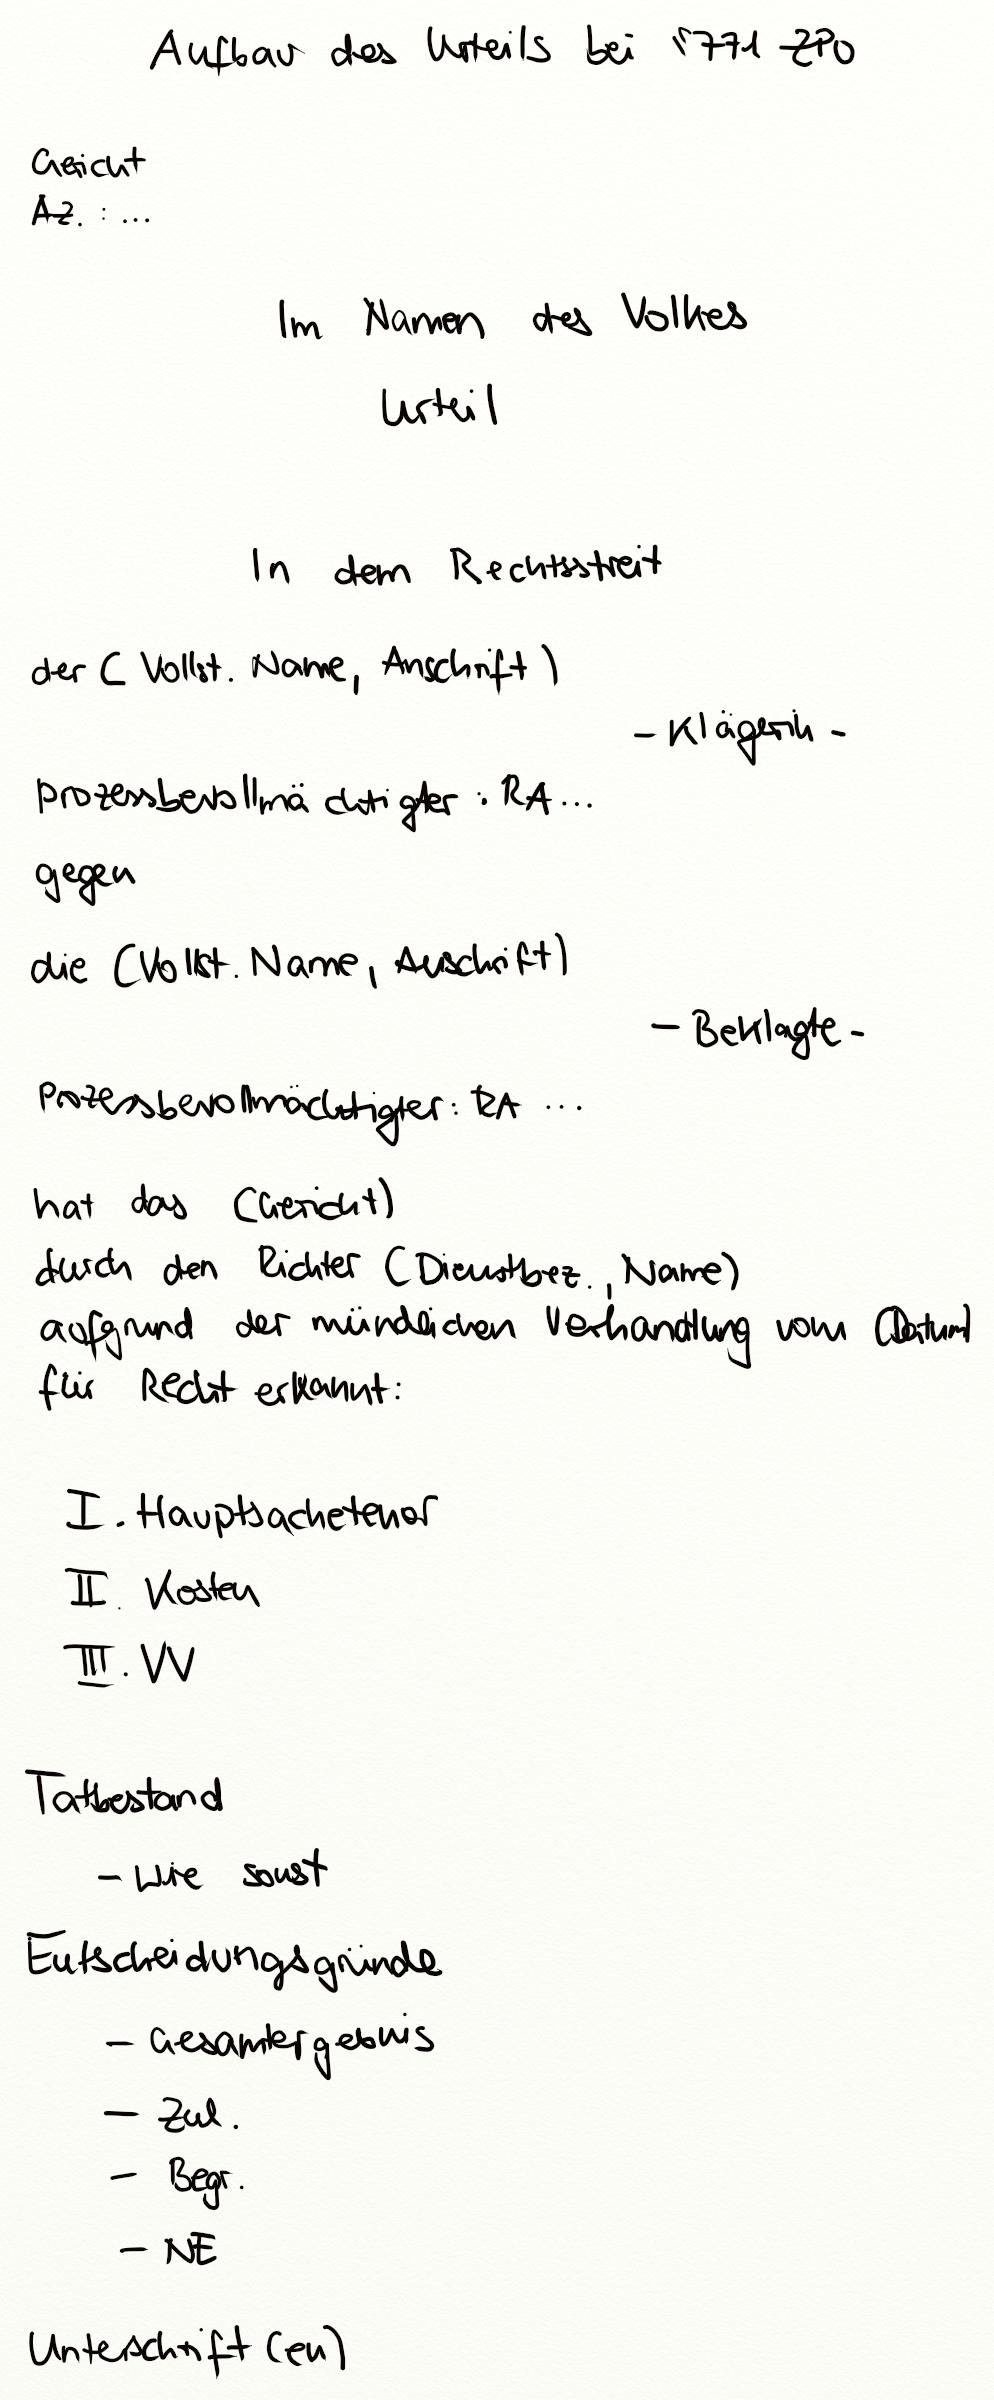 Aufbau des Urteils bei § 771 ZPO
Gericht
Az. : ...
Im Namen des Volkes
Urteil
In dem Rechtsstreit
der ( Vollst. Name, Anschrift )
- Klägerin -
Prozessbevollmächtigter : RA ...
gegen
die (Vollst. Name, Anschrift)
- Beklagte -
Prozessbevollmächtigter: RA ...
hat das (Gericht)
durch den Richter (Dienstbez., Name)
aufgrund der mündlichen Verhandlung vom (Datum)
für Recht erkannt:
I. Hauptsachetenor
II. Kosten
III. VV
Tatbestand
- Wie sonst
Entscheidungsgründe
- Gesamtergebnis
- Zul.
- Begr.
- NE
Unterschrift (en)